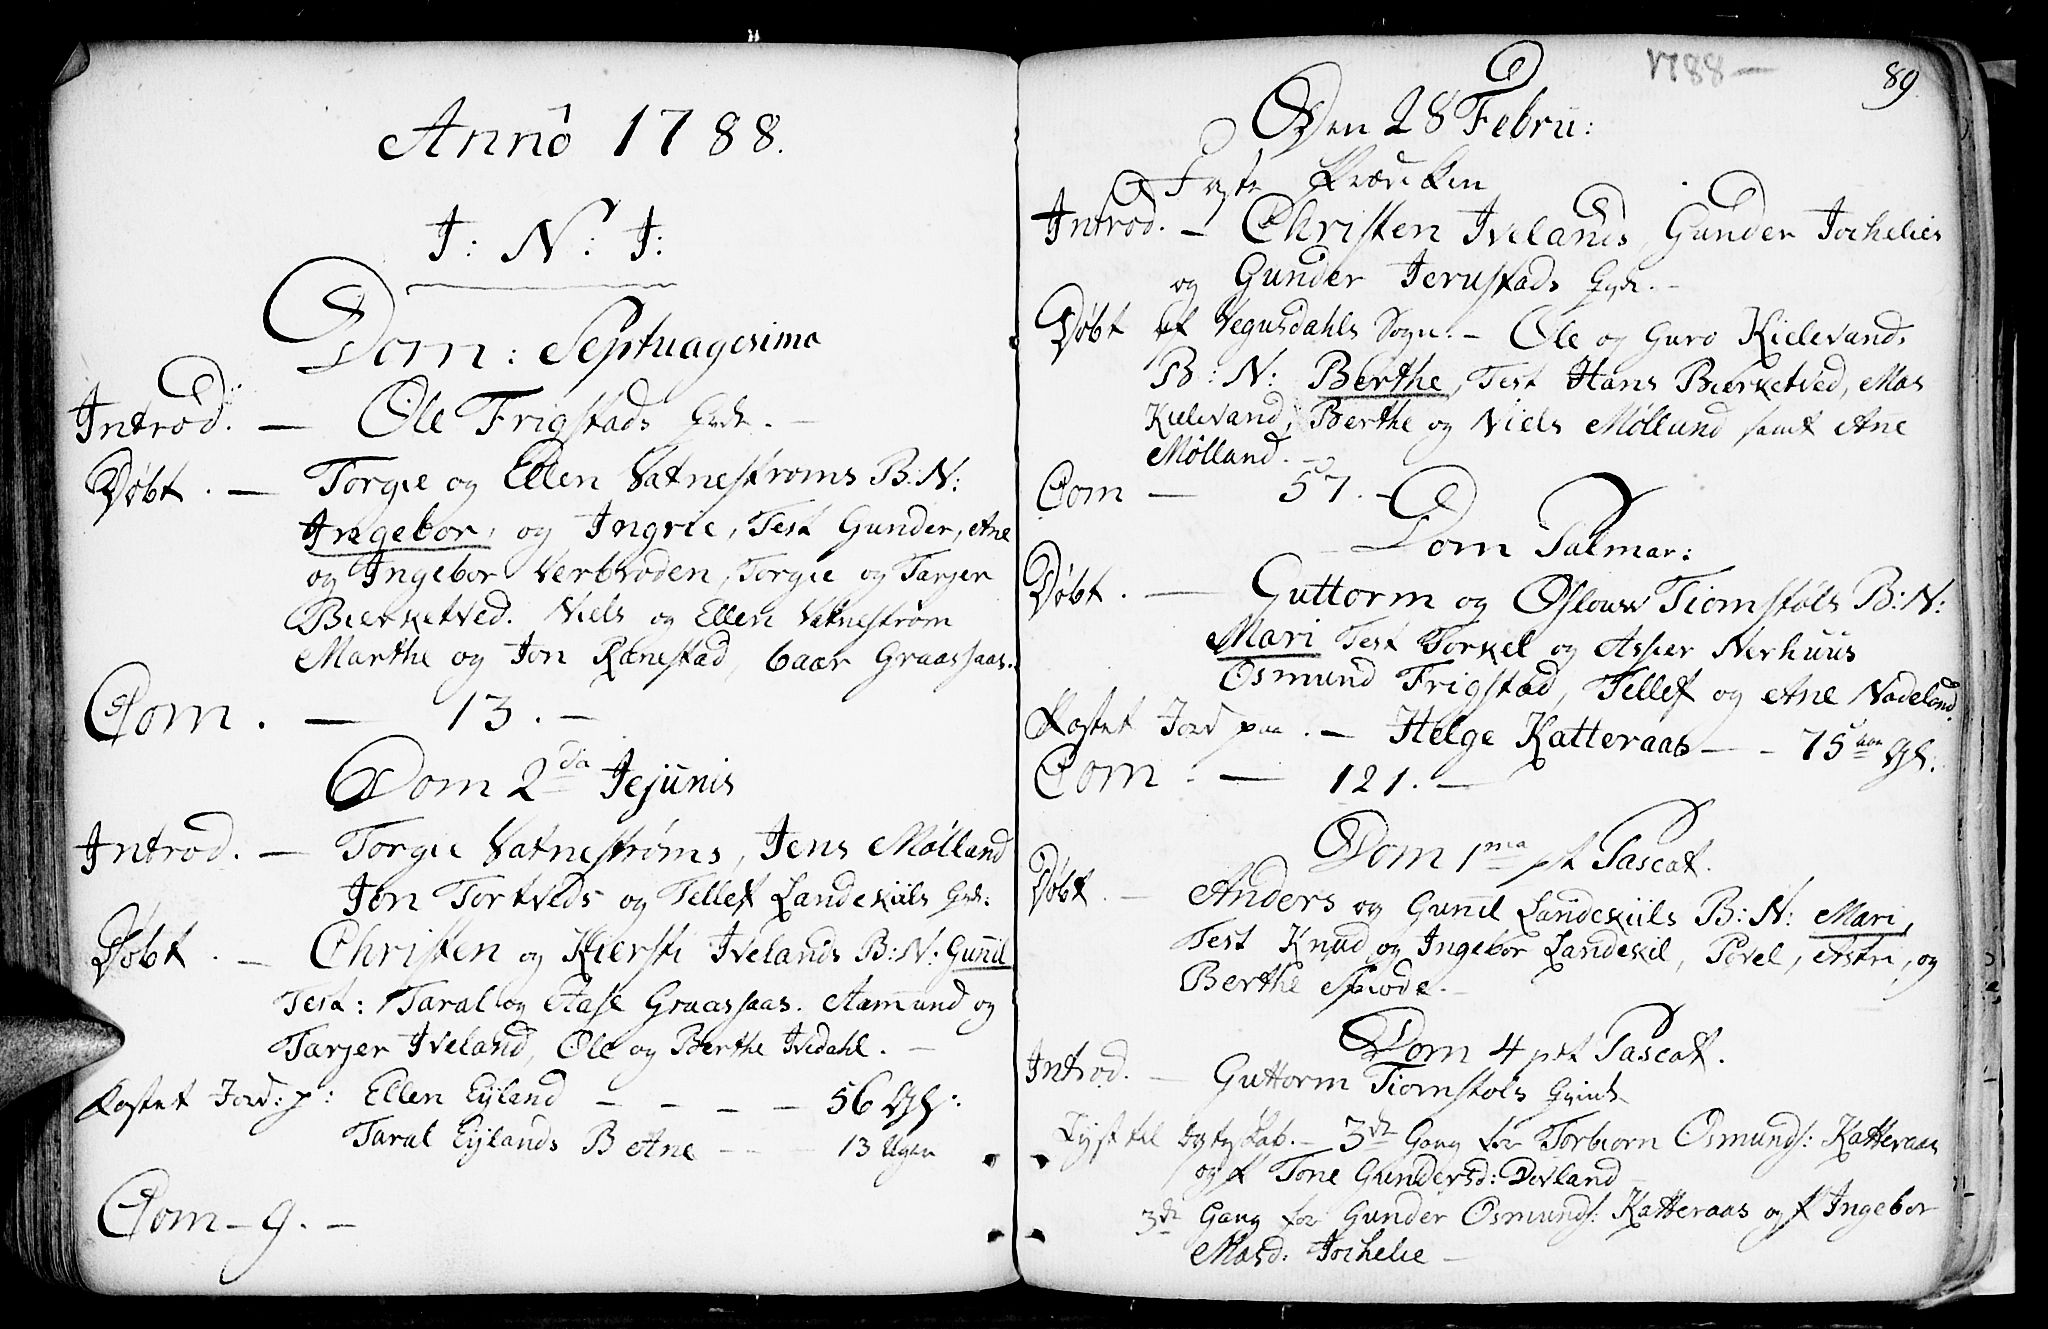 Anno 1788.
J: N: J:
Dom: Septuagesima
Introd. — Ole Frigstads
Døbt. — Torgie og Ellen Vatnestroms B: N:
Ingebor, og Ingrie, Test Gunder, Ane
og Ingebor Verbroden, Torgie og Tarjer
Bierketved. Niels og Ellen Vatnestrøm
Marthe og Jon Rønestad, baar Graassaas.
Com. — 13. —
Dom 2da Jejunis
Introd. — Torgie Vatnestrøms, Jens Mølland
Jon Tortveds og Tellef Landeskiils
Døbt. — Christen og Kiersti Ivelands B: N: Gunil
Test: Taral og Aase Graassaas. Aamund og
Tarjer Iveland, Ole og Berthe Ivedahl. —
Kastet Jord: p: Ellen Eyland — — — — 56
Taral Eylands B Ane — — — 13 Uger
Com — 9. —
1788 —
89.
Den 28 Febru:
Faste Prædiken
Introd. — Christen Ivelands, Gunder Jochelies
og Gunder Jerustads
Døbt af Vegusdahls Sogn. — Ole og Guro Kielevands
B: N: Berthe, Test Hans Bierketved, Mas
Kielevand, Berthe og Niels Møllund samt Ane
Mølland. —
Com — 57. —
Dom Palmar:
Døbt. — Guttorm og Oslouw Tiomstøls B: N:
Mari Test Torkel og Asper Nerhuus
Osmund Frigstad, Tellef og Ane Nadeland.
Kastet Jord paa. — Helge Katteraas — — 75
Com. — 121. —
Dom 1ma pt Pascat.
Døbt. — Anders og Gunil Landeskiils B: N: Mari,
Test Knud og Ingebor Landeskil, Povel, Astri, og
Berthe
Dom 4 pst Pascat.
Introd. — Guttorm Tiomstøls
Lyst til — 3de Gang for Torbiorn Osmunds: Katteraas
og Tone Gundersd: Dovland —
3de Gang for Gunder Osmunds: Katteraas og Ingebor
Masd: Jochelie —